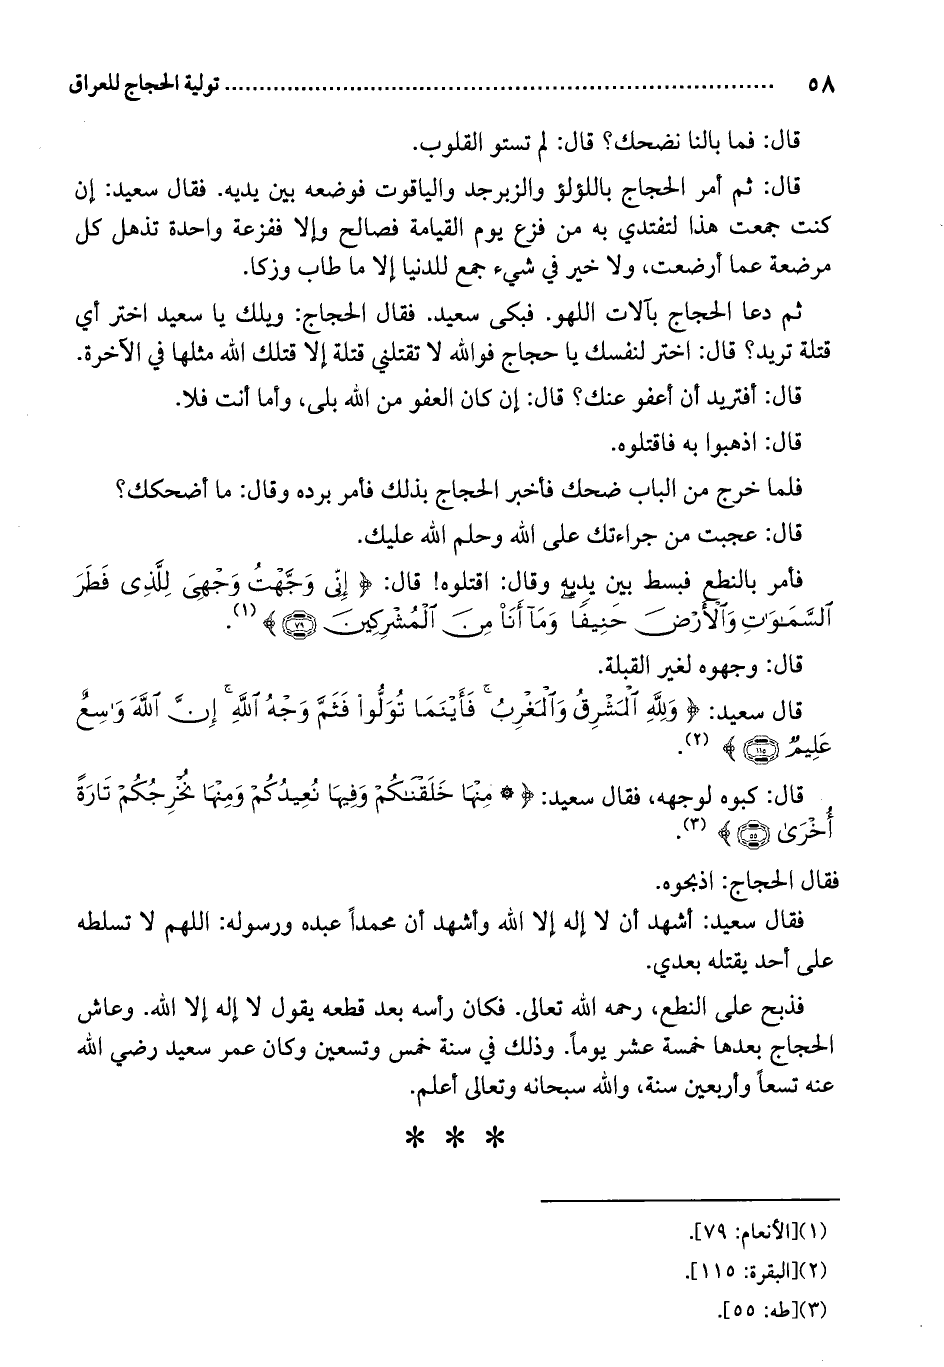 ٥٨ ........................................ تولية الحجاج للعراق
قال: فما بالنا نضحك؟ قال: لم تستو القلوب.
قال: ثم أمر الحجاج باللؤلؤ والزبرجد والياقوت فوضعه بين يديه. فقال سعيد: إن
كنت جمعت هذا لتفتدي به من فزع يوم القيامة فصالح وإلا ففزعة واحدة تذهل كل
مرضعة عما أرضعت، ولا خير في شيء جمع للدنيا إلا ما طاب وزكا.
ثم دعا الحجاج بآلات اللهو. فبكى سعيد. فقال الحجاج: ويلك يا سعيد اختر أي
قتلة تريد؟ قال: اختر لنفسك يا حجاج فوالله لا تقتلني قتلة إلا قتلك الله مثلها في الآخرة.
قال: أفتريد أن أعفو عنك؟ قال: إن كان العفو من الله بلى، وأما أنت فلا.
قال: اذهبوا به فاقتلوه.
فلما خرج من الباب ضحك فأخبر الحجاج بذلك فأمر برده وقال: ما أضحكك؟
قال: عجبت من جراءتك على الله وحلم الله عليك.
فأمر بالنطع فبسط بين يديه وقال: اقتلوه! قال: ﴿ إِنِّي وَجَّهْتُ وَجْهِيَ لِلَّذِي فَطَرَ
ٱلسَّمَـٰوَٰتِ وَٱلْأَرْضَ حَنِيفًا وَمَآ أَنَا۠ مِنَ ٱلْمُشْرِكِينَ ۝٧٩ ﴾ (١).
قال: وجهوه لغير القبلة.
قال سعيد: ﴿ وَلِلَّهِ ٱلْمَشْرِقُ وَٱلْمَغْرِبُ ۚ فَأَيْنَمَا تُوَلُّوا۟ فَثَمَّ وَجْهُ ٱللَّهِ ۚ إِنَّ ٱللَّهَ وَٰسِعٌ
عَلِيمٌ ۝١١٥ ﴾ (٢).
قال: كبوه لوجهه، فقال سعيد: ﴿ ۞ مِنْهَا خَلَقْنَـٰكُمْ وَفِيهَا نُعِيدُكُمْ وَمِنْهَا نُخْرِجُكُمْ تَارَةً
أُخْرَىٰ ۝٥٥ ﴾ (٣).
فقال الحجاج: اذبحوه.
فقال سعيد: أشهد أن لا إله إلا الله وأشهد أن محمداً عبده ورسوله: اللهم لا تسلطه
على أحد يقتله بعدي.
فذبح على النطع، رحمه الله تعالى. فكان رأسه بعد قطعه يقول لا إله إلا الله. وعاش
الحجاج بعدها خمسة عشر يوماً. وذلك في سنة خمس وتسعين وكان عمر سعيد رضي الله
عنه تسعاً وأربعين سنة، والله سبحانه وتعالى أعلم.
* * *
(١)[الأنعام: ٧٩].
(٢)[البقرة: ١١٥].
(٣)[طه: ٥٥].